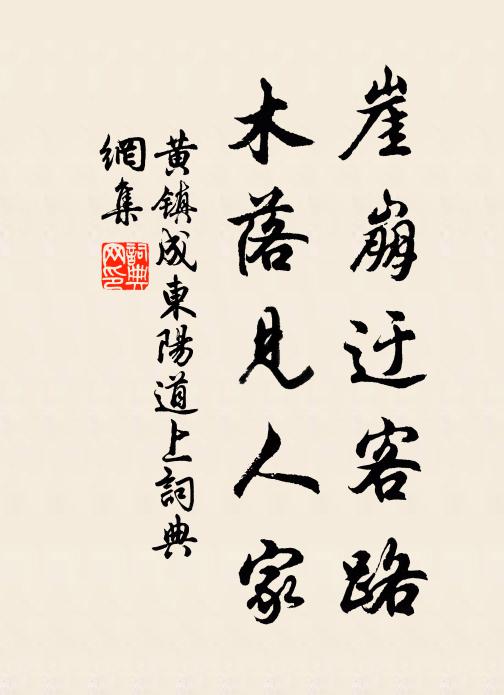 崖崩迂客路
木落見人家
黃鎮成東陽道上詞典
網集
詞典
網印